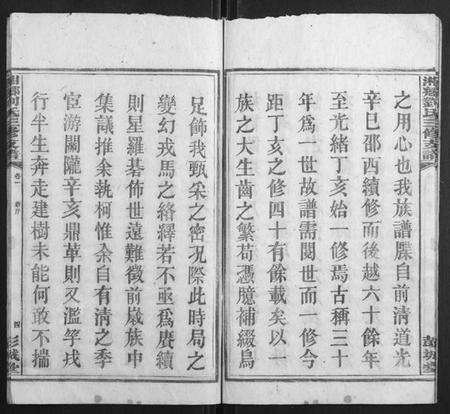 湘鄉劉氏三修支譜
之用心也我族譜牒自前清道光
辛巳邵西續修而後越六十餘年
至光緒丁亥始一修焉古稱三十
年為一世故譜需閱世而一修今
距丁亥之修四十有餘載矣以一
族之大生齒之繁苟憑臆補綴烏
彭城堂
足飾我甄采之密況際此時局之
變幻戎馬之絡繹若不亟為賡續
則星羅碁佈世遠難徵前歲族中
集議推余執柯惟余自有清之季
宦游關隴辛亥鼎革則又濫竽戎
行半生奔走建樹未能何敢不揣
湘鄉劉氏三修支譜
卷一
四
彭城堂